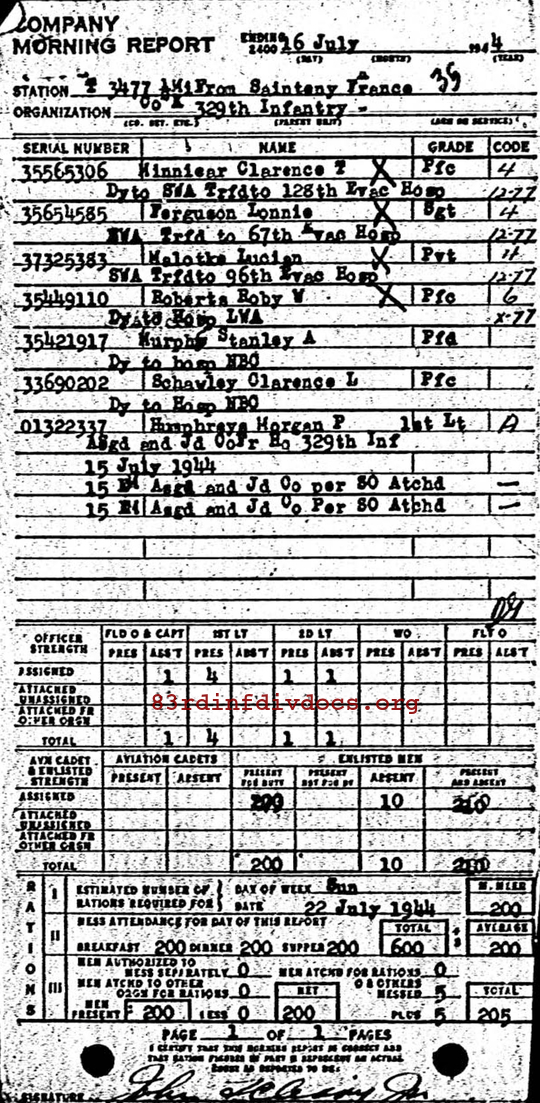 COMPANY
MORNING REPORT ENDING 2400 16 July 1944
(DAY) (MONTH) (YEAR)
STATION 3477 From Sainteny France
ORGANIZATION Co K 329th Infantry
(CO. DET. ETC.) (PARENT UNIT) (ARM OR SERVICE)
SERIAL NUMBER NAME GRADE CODE
35565306 Minniear Clarence T X Pfc 4
Dy to SWA Trfdto 128th Evac Hosp 12-77
35654585 Ferguson Lonnie X Sgt 4
Trfd to 67th Evac Hosp 12-77
37325383 Malotke Lucian X Pvt 4
SWA Trfdto 96th Evac Hosp 12-77
35449110 Roberts Roby W X Pfc 6
Dy to Hosp LWA X-77
35421917 Murphy Stanley A Pfd
Dy to hosp NBC
33690202 Schawley Clarence L Pfc
Dy to Hosp NBC
01322337 Humphreys Morgan P 1st Lt A
Asgd and Jd Co Fr Hq 329th Inf
15 July 1944
15 EM Asgd and Jd Co per SO Atchd —
15 EM Asgd and Jd Co Per SO Atchd —
OFFICER STRENGTH FLD O & CAPT 1ST LT 2D LT WO FLT O
PRES ABS'T PRES ABS'T PRES ABS'T PRES ABS'T PRES ABS'T
ASSIGNED 1 4 1 1
ATTACHED UNASSIGNED
ATTACHED FR OTHER ORGN
83rdinfdivdocs.org
TOTAL 1 4 1 1
AVN CADET & ENLISTED STRENGTH AVIATION CADETS ENLISTED MEN
PRESENT ABSENT PRESENT FOR DUTY PRESENT NOT FOR DY ABSENT PRESENT AND ABSENT
ASSIGNED 200 10 210
ATTACHED UNASSIGNED
ATTACHED FR OTHER ORGN
TOTAL 200 10 210
RATIONS
I ESTIMATED NUMBER OF RATIONS REQUIRED FOR DAY OF WEEK Sun NUMBER
DATE 22 July 1944 200
II MESS ATTENDANCE FOR DAY OF THIS REPORT TOTAL AVERAGE
BREAKFAST 200 DINNER 200 SUPPER 200 600 ÷ 3 200
III MEN AUTHORIZED TO MESS SEPARATELY 0 MEN ATCHD FOR RATIONS 0
MEN ATCHD TO OTHER ORGN FOR RATIONS 0 NET O & OTHERS MESSED 5 TOTAL
MEN PRESENT 200 LESS 0 200 PLUS 5 205
PAGE 1 OF 1 PAGES
I CERTIFY THAT THIS MORNING REPORT IS CORRECT AND
THAT RATION FIGURES IN PART III REPRESENT AN ACTUAL
COUNT AS REPORTED TO ME.
SIGNATURE John